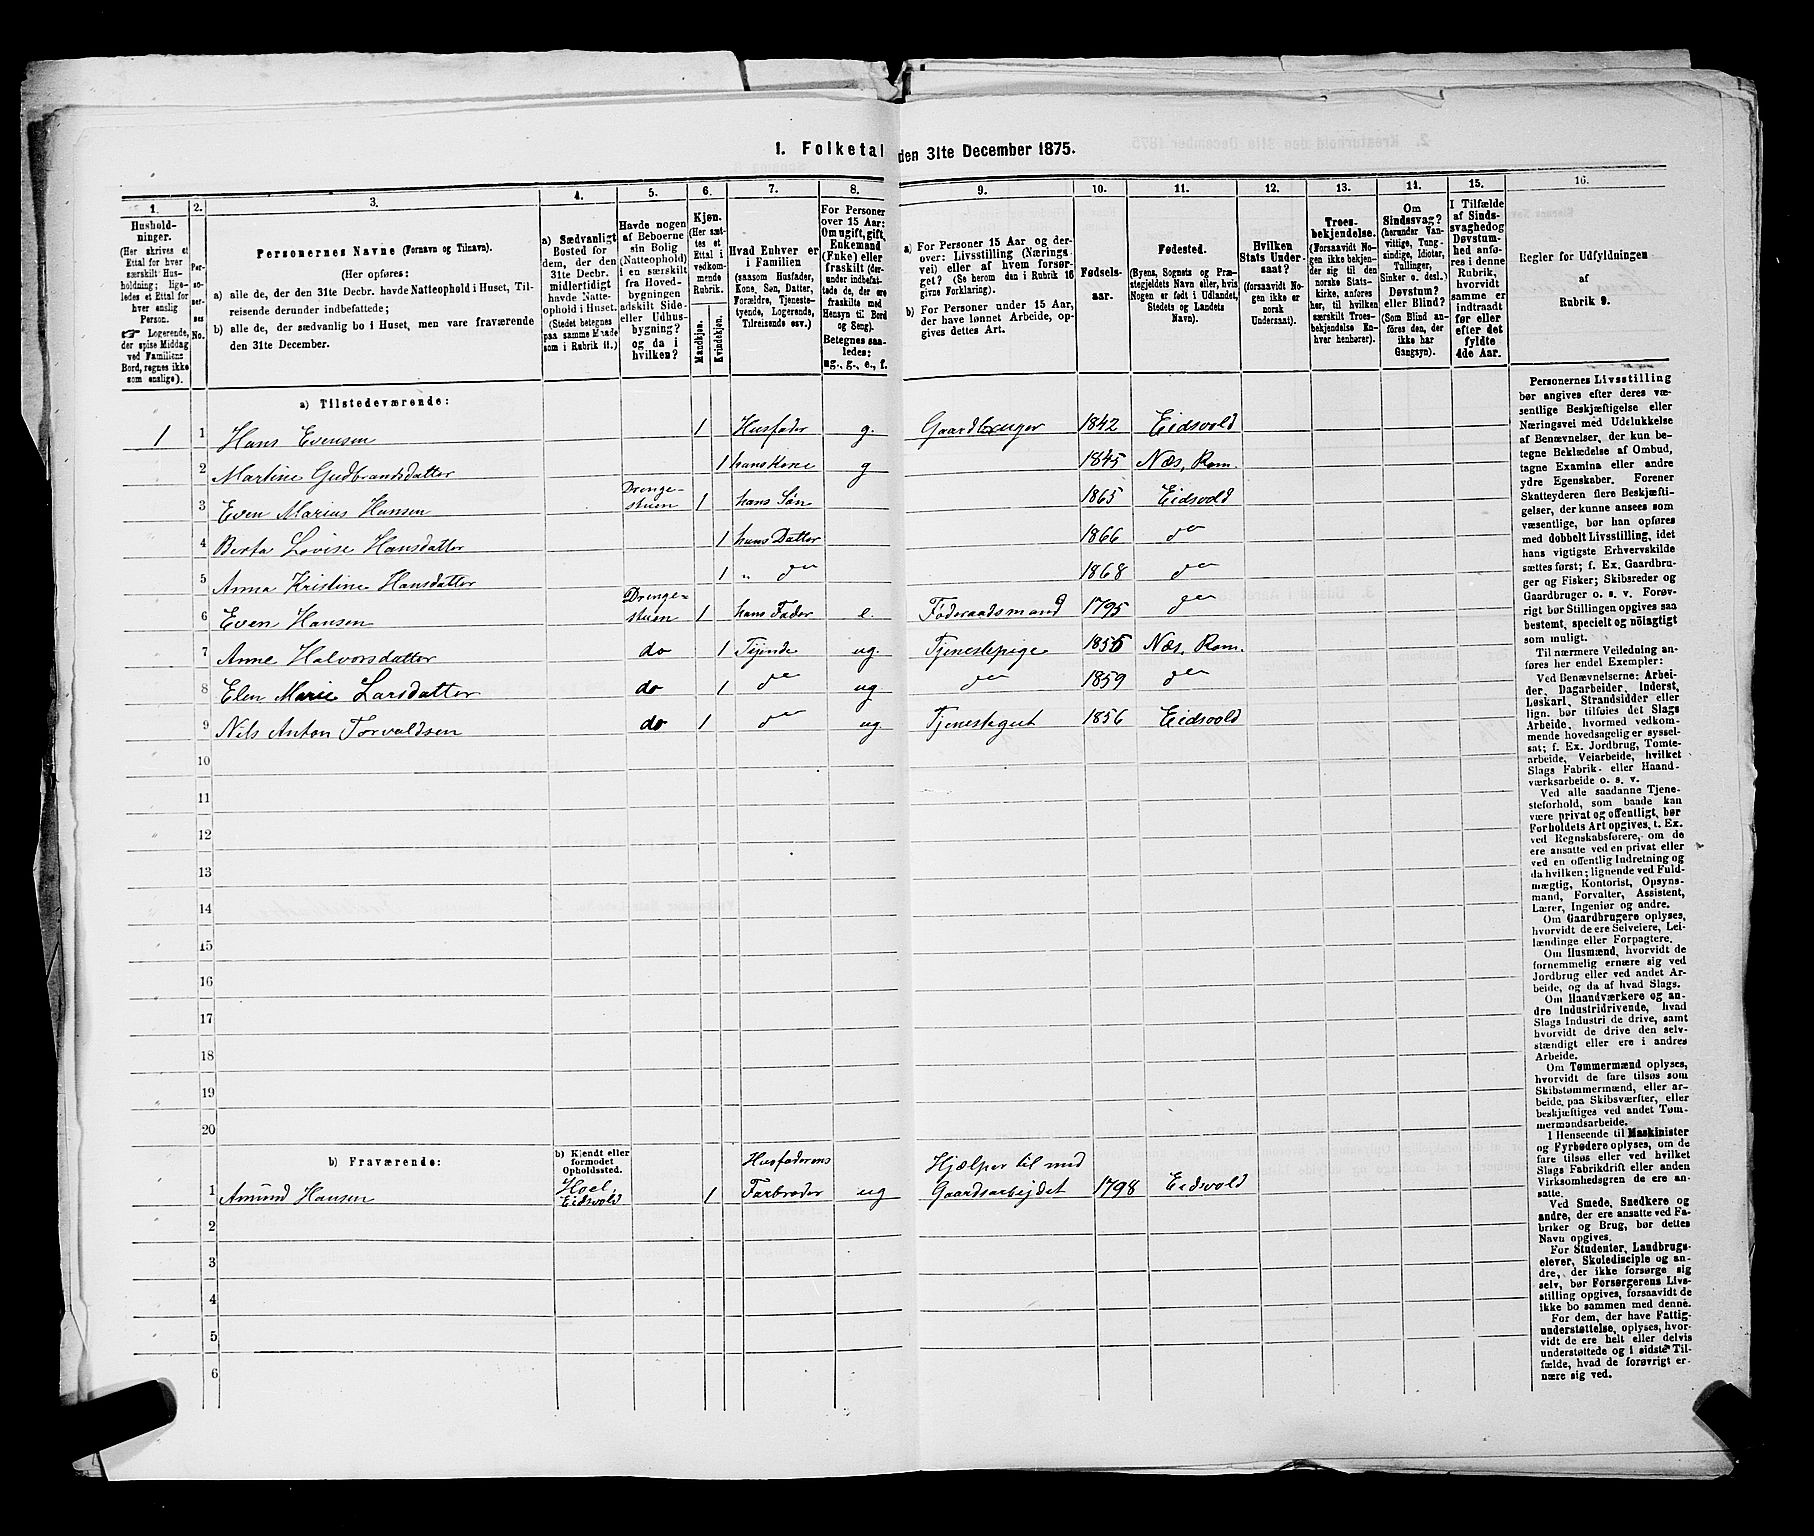 1. Folketal den 31te December 1875.
1. 2. 3. 4. 5. 6. 7. 8. 9. 10. 11. 12. 13. 14. 15. 16.
Husholdninger.
(Her skrives et
Ettal for hver
særskilt Husholdning; ligeledes et Ettal for
hver enslig
Person.
☞ Logerende,
der spise Middag
ved Familiens
Bord, regnes ikke
som enslige).
Personernes No.
Personernes Navne (Fornavn og Tilnavn).
(Her opføres:
a) alle de, der den 31te Decbr. havde Natteophold i Huset, Tilreisende derunder indbefattede;
b) alle de, der sædvanlig bo i Huset, men vare fraværende
den 31te December.
a) Sædvanligt
Bosted for
dem, der den
31te Decbr.
midlertidigt
havde Natteophold i Huset.
(Stedet betegnes
paa samme Maade
som i Rubrik 11.)
Havde nogen
af Beboerne
sin Bolig
(Natteophold)
i en særskilt
fra Hovedbygningen
adskilt Side-
eller Udhusbygning?
og da i
hvilken?
Kjøn.
(Her sættes et
Ettal i
vedkommende
Rubrik.
Mandkjøn.
Kvindekjøn.
Hvad Enhver er
i Familien
(saasom Husfader,
Kone, Søn, Datter,
Forældre, Tjenestetyende, Logerende,
Tilreisende osv.)
For Personer
over 15 Aar:
Om ugift, gift,
Enkemand
(Enke) eller
fraskilt (derunder indbefattede de, der ere
fraskilte med
Hensyn til Bord
og Seng).
Betegnes saaledes:
ug., g., e., f.
a) For Personer 15 Aar og derover: Livsstilling (Næringsvei) eller af hvem forsørget? (Se herom den i Rubrik 16
givne Forklaring).
b) For Personer under 15 Aar,
der have lønnet Arbeide, opgives dettes Art.
Fødselsaar.
Fødested.
(Byens, Sognets og Præstegjeldets Navn eller, hvis
Nogen er født i Udlandet,
Stedets og Landets
Navn).
Hvilken
Stats Undersaat?
(forsaavidt Nogen ikke er
norsk
Undersaat).
Troesbekjendelse.
(Forsaavidt Nogen ikke bekjender
sig til den
norske Statskirke, anføres
her, til hvilken
særskilt Troesbekjendelse Enhver henhører).
Om
Sindssvag?
(herunder Vanvittige, Tungsindige, Idioter,
Tullinger,
Sinker o. desl.)
Døvstum?
eller Blind?
(Som Blind anføres den, der
ikke har
Gangsyn).
I Tilfælde
af Sindssvaghed og
Døvstumhed anføres i denne
Rubrik,
hvorvidt
samme er
indtraadt
før eller
efter det
fyldte
4de Aar.
Regler for Udfyldningen
af
Rubrik 9.
a) Tilstedeværende:
1 1 Hans Evensen 1 Husfader g. Gaardbruger 1842 Eidsvold
2 Martine Gudbrandsdatter 1 hans Kone g 1845 Næs, Rom.
3 Even Marius Hansen Drengestuen 1 hans Søn 1865 Eidsvold
4 Berta Lovise Hansdatter 1 hans Datter 1866 do
5 Anna Kristine Hansdatter 1 " do 1868 do
6 Even Hansen Drengestuen 1 hans Fader e. Føderaadsmand 1795 do
7 Anne Halvorsdatter do 1 Tjende ug Tjenestepige 1855 Næs, Rom.
8 Elen Marie Larsdatter do 1 do ug do 1859 do
9 Nils Anton Torvaldsen do 1 do ug Tjenestegut 1856 Eidsvold
10
11
12
13
14
15
16
17
18
19
20
b) Fraværende:
b) Kjendt eller
formodet
Opholdssted.
1 Amund Hansen Hoel, Eidsvold 1 Husfaderens Farbroder ug Hjælper til med Gaardsarbejdet 1798 Eidsvold
2
3
4
5
6
Personernes Livsstilling
bør angives efter deres væsentlige Beskjæftigelse eller
Næringsvei med Udelukkelse
af Benævnelser, der kun betegne Beklædelse af Ombud,
tagne Examina eller andre
ydre Egenskaber. Forener
Skatteyderen flere Beskjæftigelser, der kunne ansees som
væsentlige, bør han opføres
med dobbelt Livsstilling, idet
hans vigtigste Erhvervskilde
sættes først; f. Ex. Gaardbruger og Fisker; Skibsreder og
Gaardbruger o. s. v. Forøvrigt bør Stillingen opgives saa
bestemt, specielt og nöiagtigt
som muligt.
Til nærmere Veiledning anføres her endel Exempler:
Ved Benævnelserne: Arbeider, Dagarbeider, Inderst,
Løskarl, Strandsidder eller
lign. bør tilføies det Slags
Arbeide, hvormed vedkommende hovedsagelig er sysselsat; f. Ex. Jordbrug, Tomtearbeide, Veiarbeide, hvilket
Slags Fabrik- eller Haandværksarbeide o. s. v.
Ved alle saadanne Tjenesteforhold, som baade kan
være privat og offentligt, bør
Forholdets Art opgives, t. Ex.
ved Regnskabsførere, om de
ere ansatte ved en privat eller
ved en offentlig Indretning og
da hvilken; lignende ved Fuldmægtig, Kontorist, Opsynsmand, Forvalter, Assistent,
Lærer, Ingeniør og andre.
Om Gaardbrugere oplyses,
hvorvidt de ere Selveiere, Leilændinge eller Forpagtere.
Om Husmænd, hvorvidt de
fornemmelig ernære sig ved
Jordbrug eller ved andet Arbeide, og da af hvad Slags.
Om Haandværkere og andre Industridrivende, hvad
Slags Industri de drive, samt
hvorvidt de drive den selvstændigt eller ere i andres
Arbeide.
Om Tømmermænd oplyses,
hvorvidt de fare tilsøs som
Skibstømmermænd, eller arbeide paa Skibsværfter, eller
beskjæftiges ved andet Tømmermandsarbeide.
I Henseende til Maskinister
og Fyrbødere oplyses, om de
fare tilsøs eller ved hvilket
Slags Fabrikdrift eller anden
Virksomhedsgren de ere ansatte.
Ved Smede, Snedkere og
andre, der ere ansatte ved Fabriker og Brug, bør dettes
Navn opgives.
For Studenter, Landbrugselever, Skoledisciple og andre, der ikke forsørge sig
selv, bør Forsørgerens Livsstilling opgives, forsaavidt de
ikke bo sammen med denne.
For dem, der have Fattigunderstøttelse, oplyses, hvorvidt de ere helt eller delvis
understøttede og i sidste Tilfælde, hvad de forøvrigt ernære sig ved.